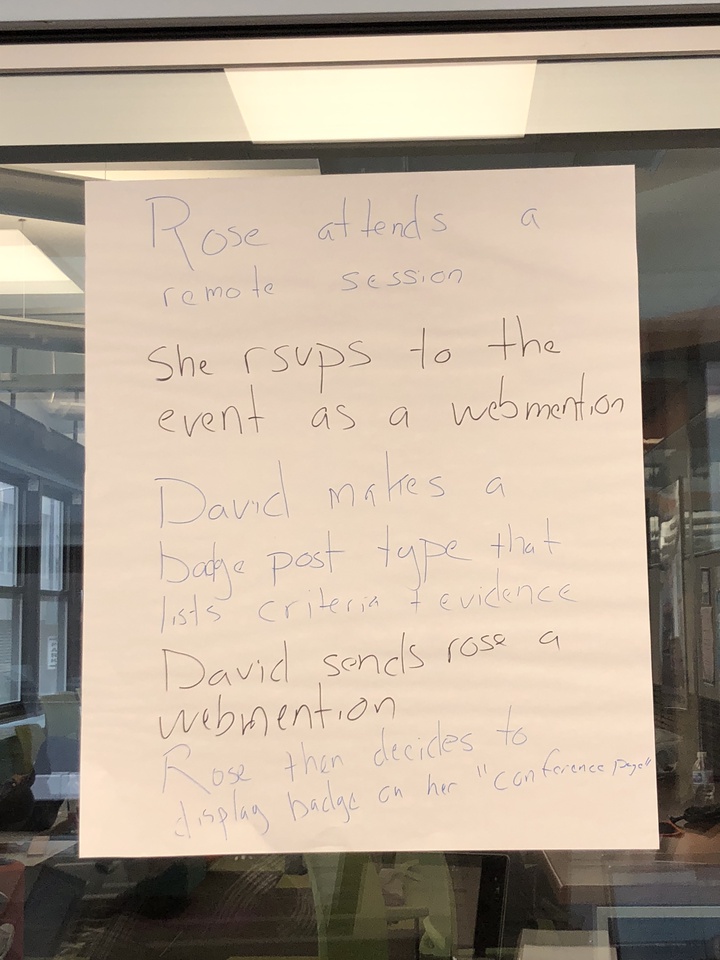 Rose attends a
remote session
She rsvps to the
event as a webmention
David makes a
badge post type that
lists criteria + evidence
David sends rose a
webmention
Rose then decides to
display badge on her "conference page"